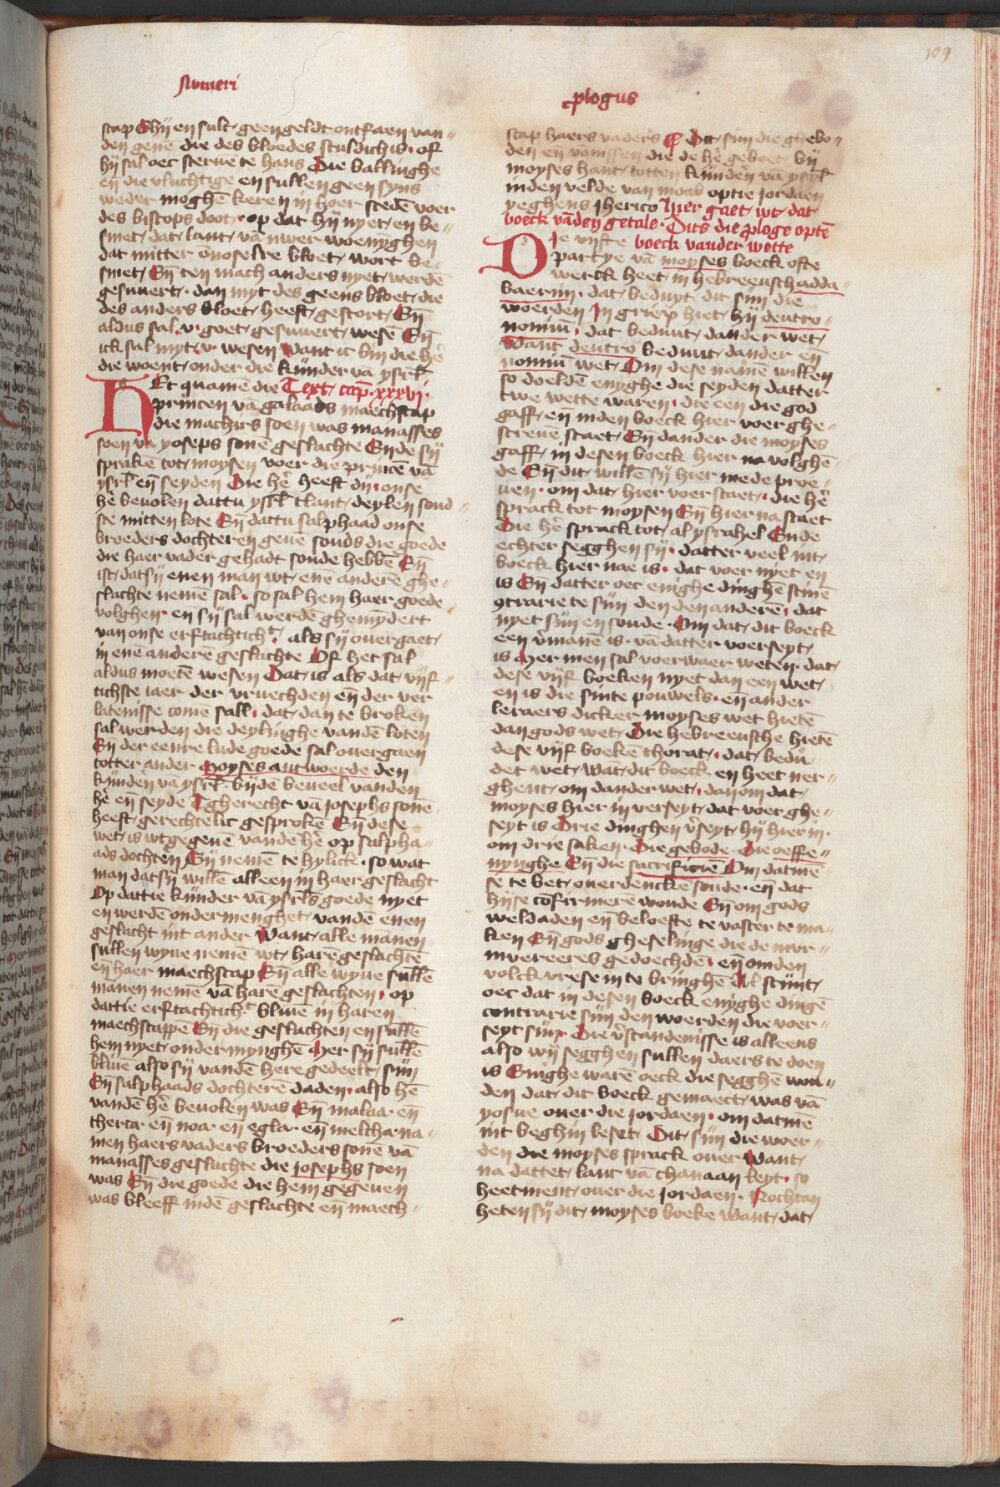 109
Numeri
scap Ghij en sult geen geldt ontfaen van
den gene die des bloedes sculdich is of
hij sal oec sterve te hans Die ballinghe
eñ die vluchtige en sullen geen syns
weder moghē keren in hoer stedē voer
des bistops doot op dat hij nyet en be
smet dat lant vā uwer woenyghen
dat mitter ōnoselre bloet wort be
smet Eñ ten mach anders nyet werdē
gesuvert dan myt des geens bloet die
des anders bloet heeft gestort Eñ
aldus sal u goet gesuvert wesē Eñ
ick sal myt u wesen Want ic bin die hē
die woent onder die kinder vā ysrl
Et quamē die Text cap xxxvi
princen vā galaads maechscap
die machirs soen was manasses
soen vā yoseps sonē geslachte Ende sij
sprakē tot moysen voer die princē vā
ysrl eñ seyden Die hē heeft di onse
hē bevolen dattu ysrl tlant deylen soud
ste mitten lote Eñ dattu salphaad onse
broeders dochteren gevē souds die goede
die haer vader gehadt soude hebbē Eñ
ist dat sij enen man wt enē anderē ghe
slachte nemē sal so sal hem haer goede
volghen en sij sal werdē ghemyndert
van onse erftachtich als sij overgaet
in enē anderē geslachte Of het sal
aldus moetē wesen Dat is als dat vijf
tichste iaer der vruechden eñ der ver
latenisse comē sall dat dan te broken
sal werden die deylinghe vandē loten
Eñ der eenre lude goede sal overgaen
totter ander Moyses antwoerde den
kindēn vā ysrl bijdē beveel vanden
hē eñ seyde Tgherecht vā josephs sonē
heeft gerechtelic gesprokē Eñ dese
wet is wtgegevē vande hē op salpha
ads dochten Sij nemē te hylick so wat
man dat sij willē alleen in haer geslacht
Op dat tie kinder vā ysrls goede nyet
en werdē ondermenghet vandē enen
geslacht int ander Want alle mānen
sullen wyve nemē wt harē geslachtē
eñ haer maechscap Eñ alle wyve sullē
mānen nemē vā harē geslachten op
dattie erftachtich blive in haren
maechscappē Eñ die geslachten en sullē
hem nyet ondermynghē Mer sij sullē
blivē also sij vandē here gedeelt sijn
Eñ salphaads dochterē daden also hē
vandē hē bevolen was Eñ malaa eñ
therta eñ noa eñ egla eñ melcha na
men haers vaders broeders sonē vā
manasses geslachte die josephs soen
was Eñ die goede die hem gegeven
was bleeff indē geslachte eñ maech
plogus
scap haers vaders Dit sijn die ghebo
den eñ vonissen die de hē geboet bij
moyses hant totten kindēn vā ysrl
inden velde van moab optie jordaen
yeghens jherico Hier gaet wt dat
boeck vāden getale Dits die ploge optē
Die vijfte boeck vander wette
partye vā moyses boeck ofte
werck heet in hebreeusch adda
baerim dat beduyt dit sijn die
woerden In griex hiet hij deutro
nomiū dat beduut dander wet
Want deutro beduut dander eñ
nomiū wet Om dese namē willen
so doeldē enyghe die seyden datter
twe wette waren die een die god
gaff eñ inden boeck hier voer ghe
screvē staet Eñ dander die moyses
gaff in desen boeck hier na volghē
de Eñ dit willē sij hier mede proe
ven om dat hier voer staet die hē
sprack tot moysen Eñ hier na staet
Die hē sprack tot al ysrahel Ende
echter segghen sij datter veel int
boeck hier nae is dat voer nyet en
is Eñ datter oec enighe dinghē scinē
ɔtrarie te sijn den den anderē dat
nyet sijn en soude Om dat dit boeck
een v̄manē is vā datter voerseyt
is Mer men sal voerwaer weten dat
dese vijf boeken nyet dan een wet
en is die sinte pouwels eñ ander
leraers dicker moyses wet hietē
dan gods wet Die hebreeusche hietē
dese vijf boekē thorat dat bedu
det wet wat dit boeck en heet ner
ghent om dander wet dan om dat
moyses hier in verseyt dat voer ghe
seyt is Drie dinghen v̄seyt hij hier in
om drie saken Die gebode Die oeffe
nynghe Eñ die sacrificiē Om datmē
se te bet overdencke soude eñ dat
hijse cōfirmere woude Eñ om gods
weldaden eñ beloefte te vaster te ma
ken Eñ gods gheselinge die de mur
mureeres gedoechdē eñ om den
volck vrese in te bringhē Al schijnt
oec dat in desen boeck enyghe dingē
contrarie sijn den woerden die voer
seyt sijn Die v̄standenisse is alleens
also wij segghen sullen daers te doen
is Enighe warē oeck die segghē wou
den dat dit boeck gemaect was vā
yosue over die jordaen om datmē
int beghin leset Dit sijn die woer
den die moyses sprack over Want
na dattet lant vā chanaan leyt so
heetment over die jordaen Nochtan
heten sij dit moyses boeke want dat